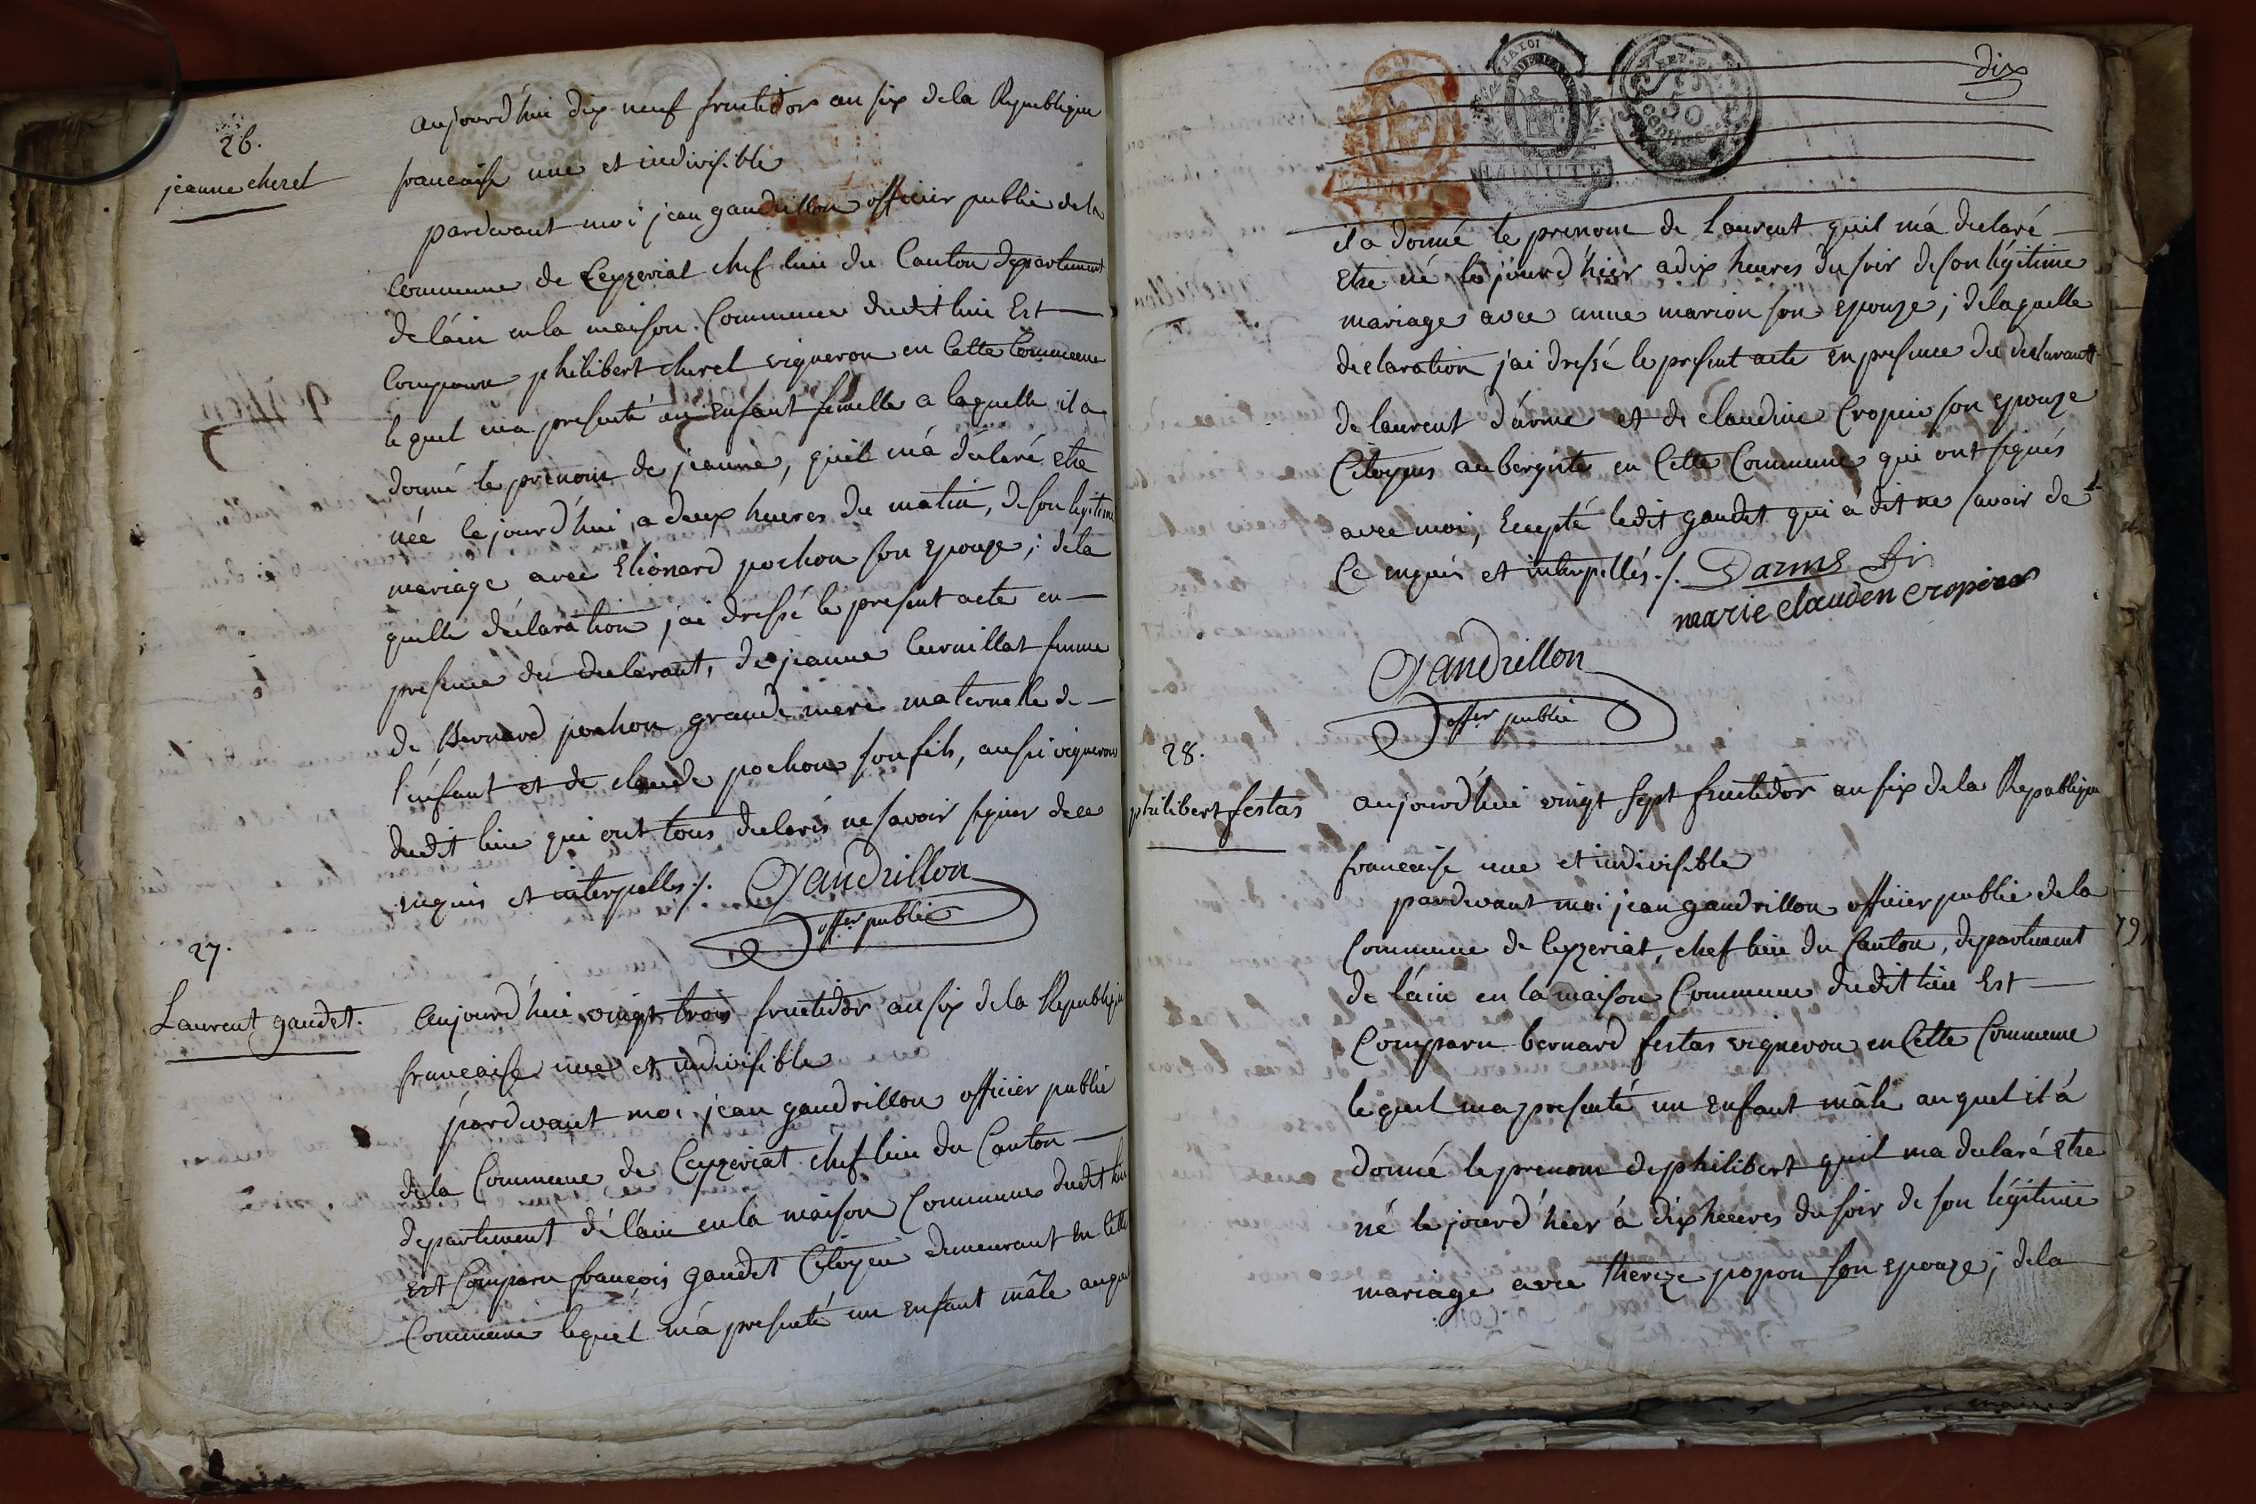 26.
jeanne cherel
aujourd'hui dix neuf fructidor an six de la Republique
francaise une et indivisible
pardevant moi jean gaudrillon officier public de la
Commune de Ceyzeriat chef lieu du Canton departement
de l'ain en la maison Commune dudit lieu Est
Comparu philibert cherel vigneron en Cette Commune
lequel m'a presenté un enfant femelle a laquelle il a
donné le prenom de jeanne, qu'il m'a déclaré etre
née le jourd'hui a deux heures du matin, de son legitime
mariage avec Elionard pochon son epouze; de la
quelle déclaration j'ai dressé le present acte en
presence du declarant, de jeanne Curvillat femme
de Bernard pochon grande mere maternelle de
l'enfant et de claude pochon son fils, aussi vigneron
dudit lieu qui ont tous declarés ne savoir signer de ce
enquis et interpellés ./. Gaudrillon
offier public
27.
Laurent gaudet.
aujourd'hui vingt trois fructidor an six de la Republique
francaise une et indivisible
pardevant moi jean gaudrillon officier public
de la Commune de Ceyzeriat chef lieu du Canton
departement de l'ain en la maison Commune dudit lieu
Est Comparu françois gaudet Citoyen demeurant en Cette
Commune lequel m'a presenté un enfant mâle auquel
dix
il a donné le prenom de Laurent qu'il m'a declaré
Etre né le jourd'hier a dix heures du soir de son légitime
mariage avec anne marion son epouze; de laquelle
declaration j'ai dressé le present acte en presence du declarant
de laurent d'arme et de claudine Cropier son epouze
Citoyens aubergiste en Cette Commune qui ont signés
avec moi, Excepté ledit gaudet qui a dit ne savoir de
Ce enquis et interpellés ./. Darme
marie clauden cropier
Gaudrillon
offier public
28.
philibert festas
aujourd'hui vingt sept fructidor an six de la Republique
francaise une et indivisible
pardevant moi jean gaudrillon officier public de la
Commune de Ceyzeriat, chef lieu du Canton, departement
de l'ain en la maison Commune dudit lieu Est
Comparu bernard festas vigneron en Cette Commune
lequel m'a presenté un enfant mâle auquel il a
donné le prenom de philibert qu'il m'a declaré Etre
né le jourd'hier à dix heures du soir de son légitime
mariage avec thereze popon son epouze; de la